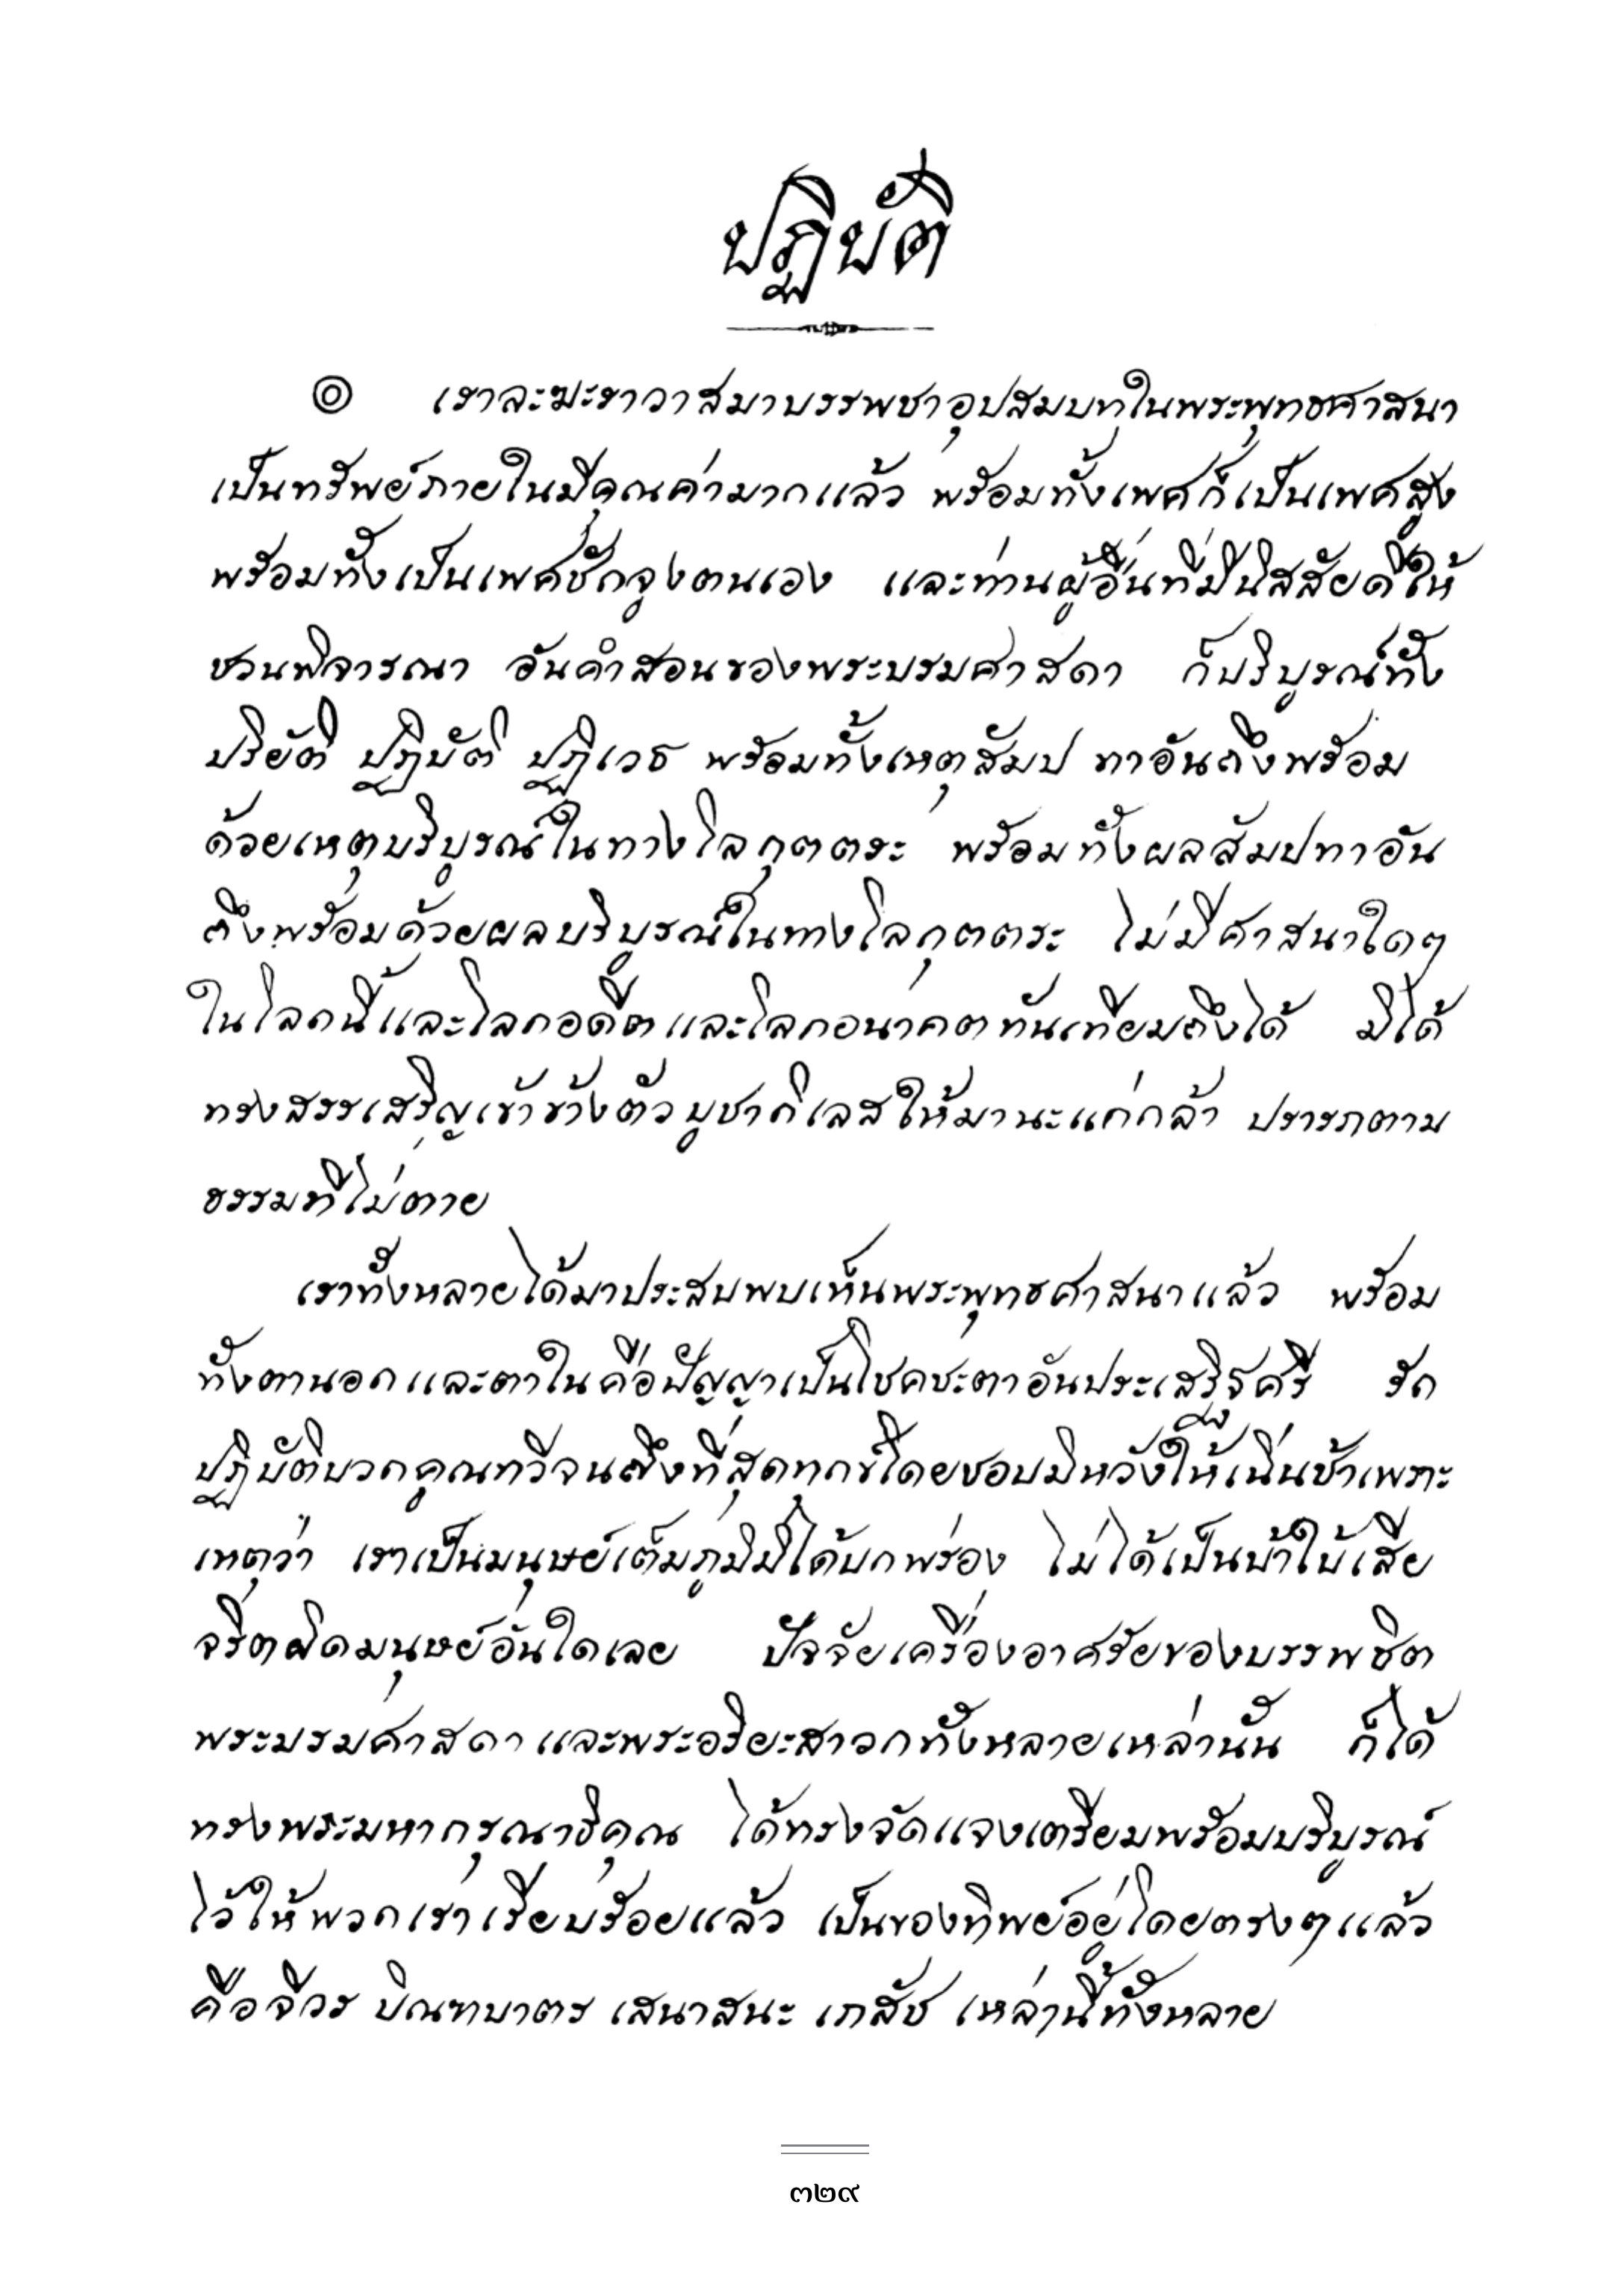 ปฏิบัติ
๏ เราละฆะราวาสมาบรรพชาอุปสมบทในพระพุทธศาสนา
เป็นทรัพย์ภายในมีคุณค่ามากแล้ว พร้อมทั้งเพศก็เป็นเพศสูง
พร้อมทั้งเป็นเพศชักจูงตนเอง และท่านผู้อื่นที่มีนิสสัยดีให้
ชวนพิจารณา อันคำสอนของพระบรมศาสดา ก็บริบูรณ์ทั้ง
ปริยัติ ปฏิบัติ ปฏิเวธ พร้อมทั้งเหตุสัมป ทาอันถึงพร้อม
ด้วยเหตุบริบูรณ์ในทางโลกุตตระ พร้อมทั้งผลสัมปทาอัน
ถึงพร้อมด้วยผลบริบูรณ์ในทางโลกุตตระ ไม่มีศาสนาใดๆ
ในโลกนี้และโลกอดีตและโลกอนาคตทันเทียมถึงได้ มิได้
ทรงสรรเสริญเข้าข้างตัวบูชากิเลสให้มานะแก่กล้า ปรารภตาม
ธรรมที่ไม่ตาย
เราทั้งหลายได้มาประสบพบเห็นพระพุทธศาสนาแล้ว พร้อม
ทั้งตานอกและตาในคือปัญญาเป็นโชคชะตาอันประเสริฐศรี รีก
ปฏิบัติบวกคูณทวีจนถึงที่สุดทุกข์โดยชอบมิหวังให้เนิ่นช้าเพราะ
เหตุว่า เราเป็นมนุษย์เต็มภูมิมิได้บกพร่อง ไม่ได้เป็นบ้าใบ้เสีย
จริตผิดมนุษย์อันใดเลย ปัจจัยเครื่องอาศรัยของบรรพชิต
พระบรมศาสดาและพระอริยะสาวกทั้งหลายเหล่านั้น ก็ได้
ทรงพระมหากรุณาธิคุณ ได้ทรงจัดแจงเตรียมพร้อมบริบูรณ์
ไว้ให้พวกเราเรียบร้อยแล้ว เป็นของทิพย์อยู่โดยตรงๆแล้ว
คือจีวร บิณฑบาตร เสนาสนะ เภสัช เหล่านี้ทั้งหลาย
๓๒๙